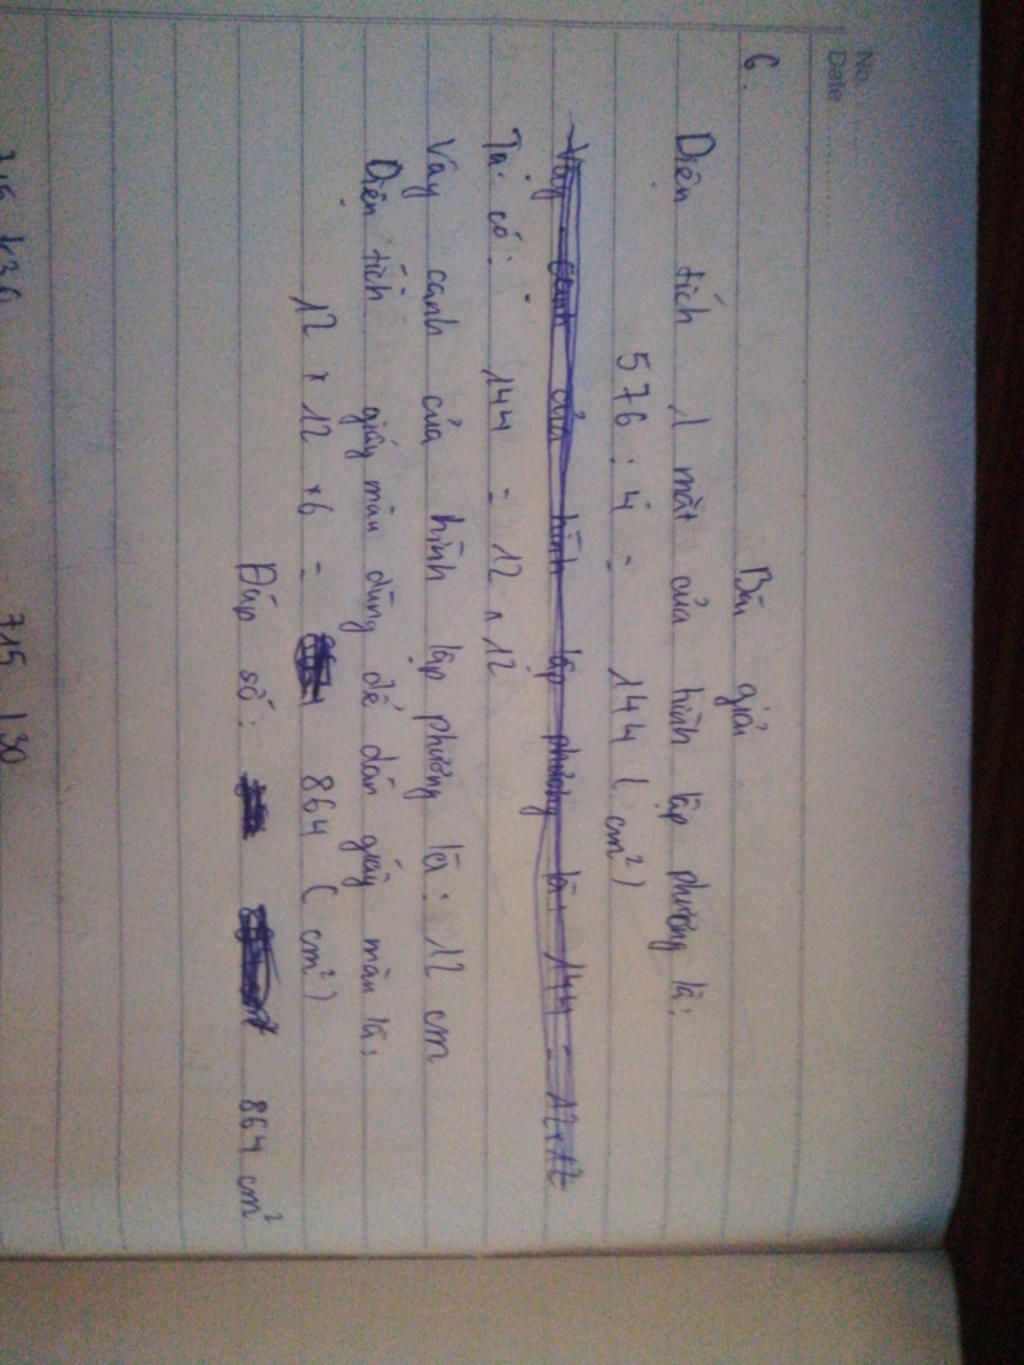 No.
Date
6.
Bài giải
Diện tích 1 mặt của hình lập phương là:
576 : 4 = 144 ( cm² )
Vậy cạnh của hình lập phương là: 144 = 12 x 12
Ta có: 144 = 12 x 12
Vậy cạnh của hình lập phương là: 12 cm
Diện tích giấy màu dùng để dán giấy màu là:
12 x 12 x 6 = 864 ( cm² )
Đáp số: 864 cm²
715 130